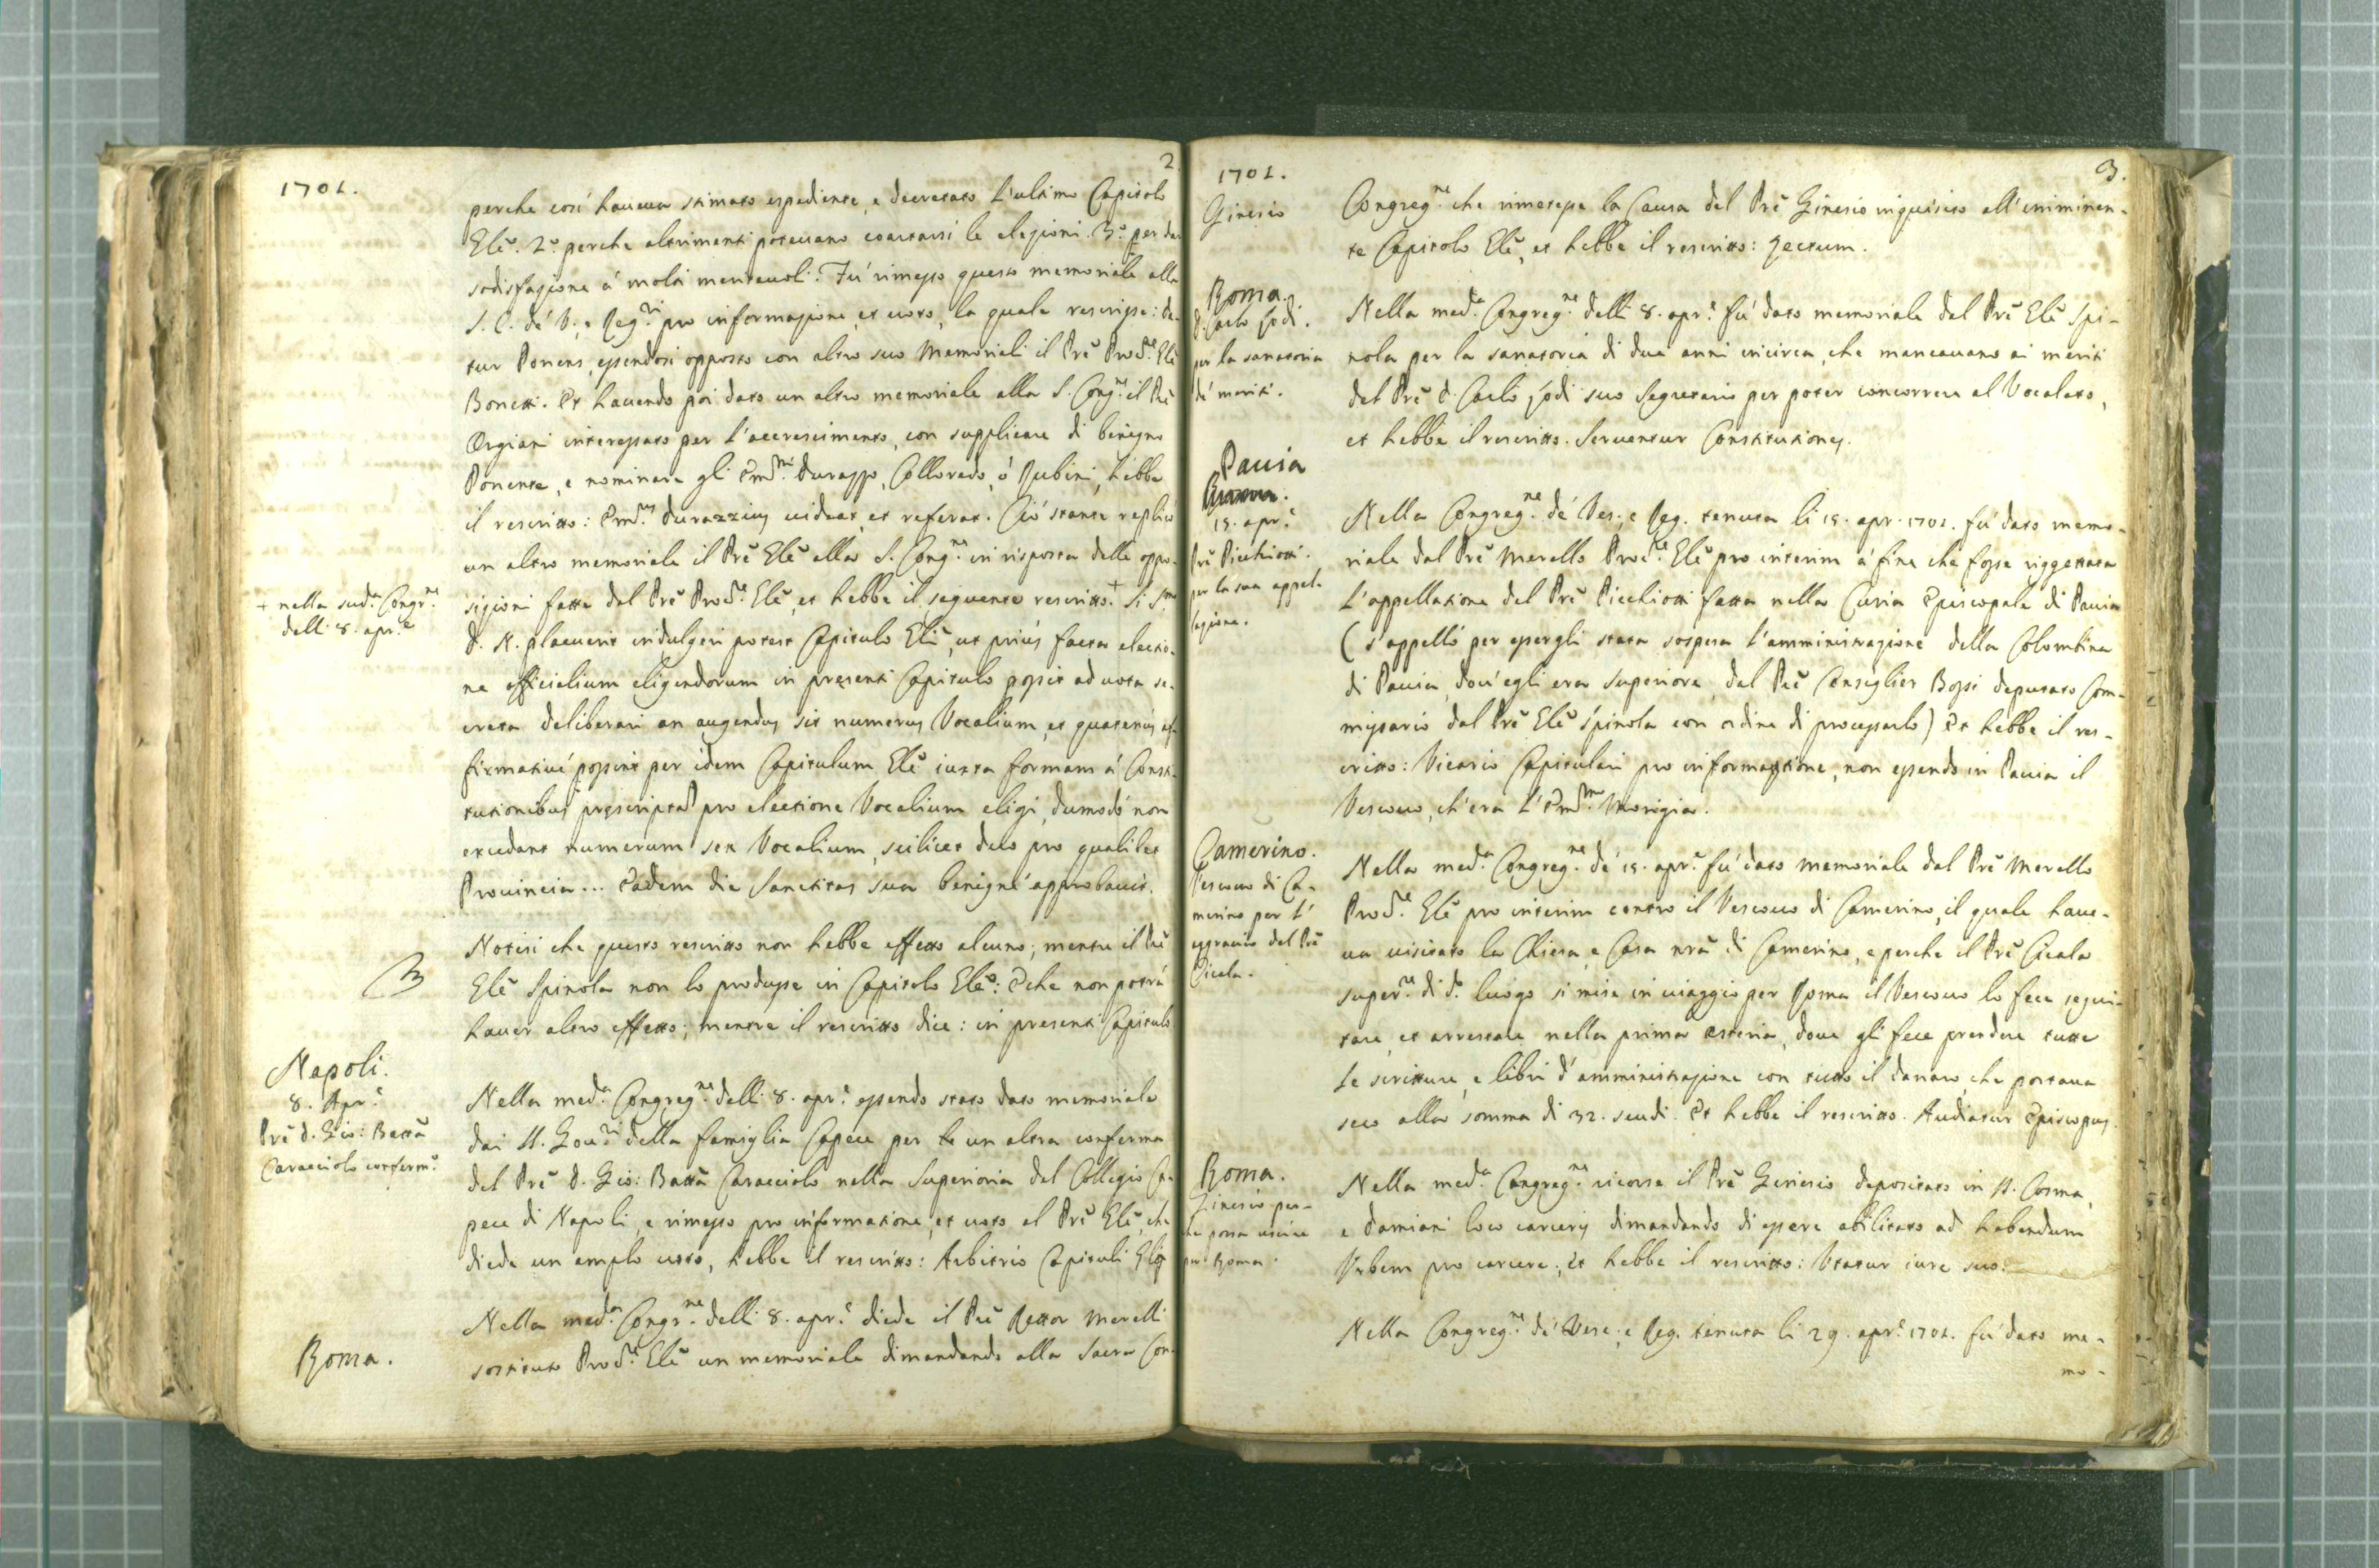 2
1701.
perche così haueua stimato espediente, e decretato l'ultimo Capitolo
Gl̃e. 2.º perche altrimenti poteuano coartarsi le elezioni. 3.º per dar
sodisfazione à molti meriteuoli. Fù rimesso questo memoriale alla
S. C. de' V., e Reg.ri pro informazione, et uoto, la quale rescrisse: de-
tur Ponens, essendosi opposto con altro suo Memoriali il Prẽ Proc.re Gl̃e
Bonetti. Et hauendo poi dato un altro memoriale alla S. Cong.ne il Prẽ
Orgiani interessato per l'accrescimento, con supplicare di benigno
Ponente, e nominare gli Em.mi Durazzo, Colloredo, ò Rubini, hebbe
il rescritto: Em.us Durazzius uideat, et referat. Ciò stante replicò
un altro memoriale il Prẽ Gl̃e alla S. Cong.ne in risposta delle oppo-
+ nella sud.a Congr.ne
delli 8. apr.e
sizioni fatte dal Prẽ Proc.re Gl̃e, et hebbe il seguente rescritto.+ Si S.mo
D. N. placuerit indulgeri potest Capitulo Gl̃i, ut priùs facta electio-
ne officialium eligendorum in pręsenti Capitulo possit ad uota se-
creta deliberari an augendus sit numerus Vocalium, et quatenùs af-
firmatiuè possint per idem Capitulum Gl̃e iuxta formam à Consti-
tutionibus pręscriptã pro electione Vocalium eligi, dumodò non
excedant numerum sex Vocalium, scilicet duo pro qualibet
Prouincia... Eadem die Sanctitas sua benignè approbauit.
Notisi che questo rescritto non hebbe effetto alcuno; mentre il Prẽ
Gl̃e Spinola non lo produsse in Capitolo Gl̃e: E che non potrà
hauer altro effetto; mentre il rescritto dice: in presenti Capitulo
Napoli.
8. Apr.e
Prẽ D. Gio: Battã
Caracciolo conferm.º
Nella med.a Congreg.ne delli 8. apr.e essendo stato dato memoriale
dai SS. Gou.ri della famiglia Capece per un altra conferma
del Prẽ D. Gio: Battã Caracciolo nella Superioria del Collegio Ca-
pece di Napoli, e rimesso pro informatione, et uoto al Prẽ Gl̃e, che
diede un amplo uoto, hebbe il rescritto: Arbitrio Capituli Gl̃is
Roma.
Nella med.a Congr.ne delli 8. apr.e diede il Prẽ Rettor Merelli
sostituto Proc.re Gl̃e un memoriale dimandando alla Sacra Con-
3.
1701.
Ginesio
Congreg.ne che rimetesse la Causa del Prẽ Ginesio inquisito all'imminen-
te Capitolo Gl̃e, et hebbe il rescritto: Lectum.
Roma.
D. Carlo Jodi.
per la sanatoria
de' meriti.
Nella med.a Congreg.ne delli 8. apr.e fù dato memoriale dal Prẽ Gl̃e Spi-
nola per la sanatoria di due anni incirca, che mancauano ai meriti
del Prẽ D. Carlo Jodi suo Segretario per poter concorrere al Vocalato,
et hebbe il rescritto. Seruentur Constitutiones.
Pauia
15. apr.e
Prẽ Picchiotti.
per la sua appel-
lazione.
Nella Congreg.ne de' Ves., e Reg. tenuta li 15. apr. 1701. fù dato memo-
riale dal Prẽ Merello Proc.re Gl̃e pro interim à fine che fosse riggettata
l'appellatione del Prẽ Picchiotti fatta nella Curia Episcopale di Pauia
(s'appellò per essergli stata sospesa l'amministrazione della Colombina
di Pauia, dou'egli era Superiore, dal Prẽ Consiglier Bossi deputato Com-
missario dal Prẽ Gl̃e Spinola con ordine di processarlo) Et hebbe il res-
critto: Vicario Capitulari pro informatione, non essendo in Pauia il
Vescouo, ch'era l'Em.mo Morigia.
Camerino.
Vescouo di Ca-
merino per l'
aggrauio del Prẽ
Cicala.
Nella med.a Congreg.ne de' 15. apr.e fù dato memoriale dal Prẽ Merello
Proc.re Gl̃e pro interim contro il Vescouo di Camerino, il quale haue-
ua uisitato la Chiesa, e Casa nrã di Camerino, e perche il Prẽ Cicala
super.re di d.º luogo si mise in uiaggio per Roma il Vescouo lo fece segui-
tare, et arrestare nella prima osteria, doue gli fece prendere tutte
le scritture, e libri d'amministrazione con tutto il danaro, che portaua
seco alla somma di 32. scudi. Et hebbe il rescritto. Audiatur Episcopus.
Roma.
Ginesio per-
che possa uscire
per Roma.
Nella med.a Congreg.ne ricorse il Prẽ Ginesio depositato in SS. Cosma,
e Damiani loco carceris dimandando di essere abilitato ad habendum
Vrbem pro carcere; et hebbe il rescritto: Vtatur iure suo.
Nella Congreg.ne de' Vesc., e Reg. tenuta li 29. apr.e 1701. fù dato me-
mo-